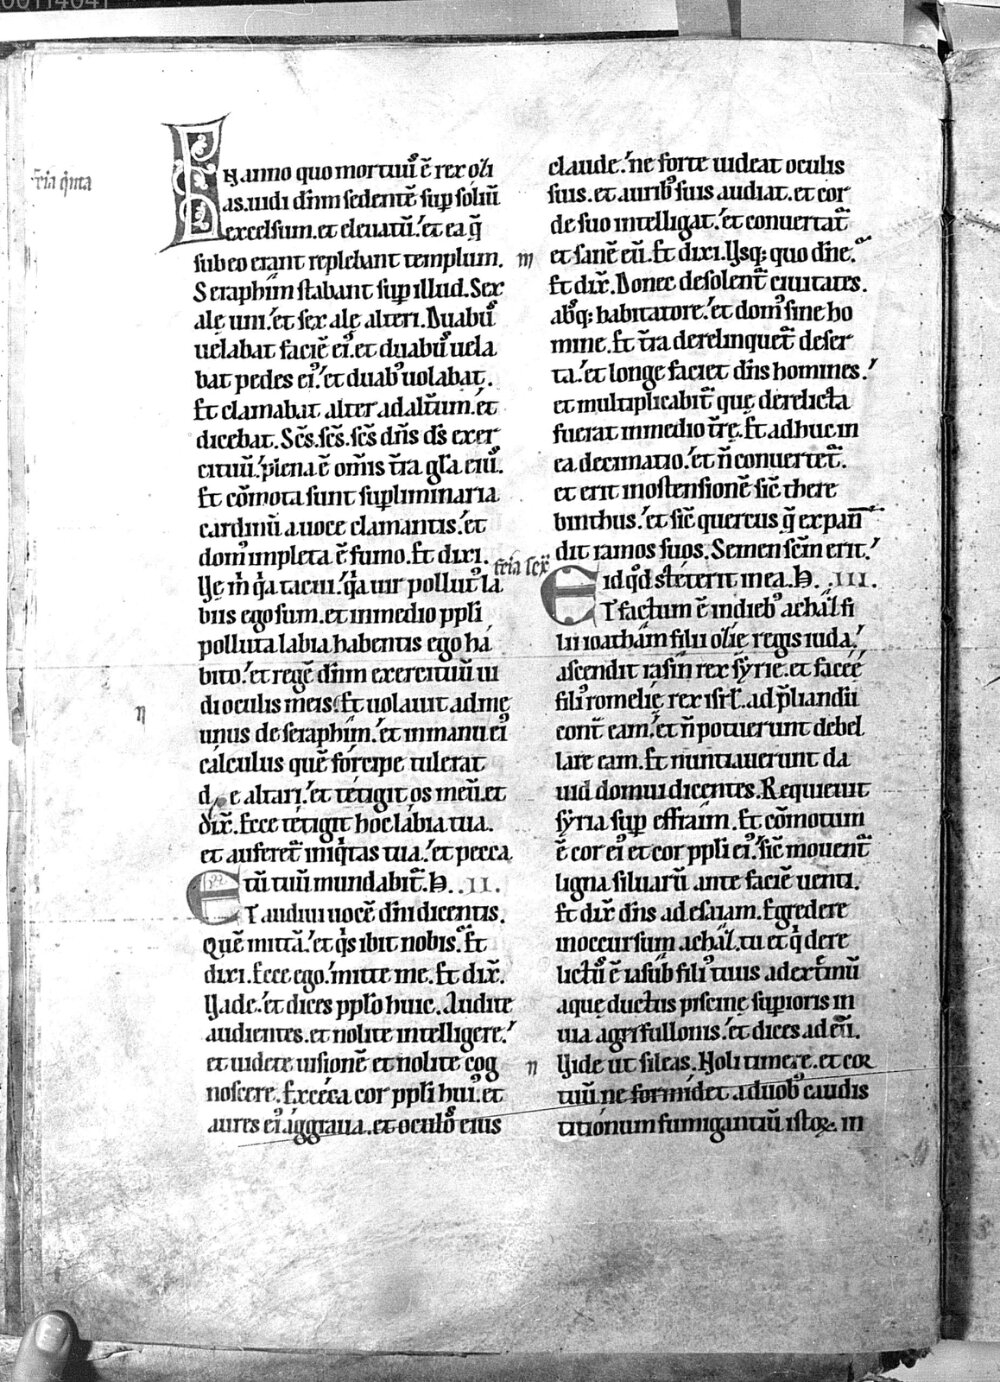 00114041
f͞ria q͛nta
EN anno quo mortuu᷒ ē rex ozi
as. uidi dn̄m sedentē sup̱ soliū
excelsum. et eleuatū. et ea q̄
sub eo erant replebant templum.
Seraphim stabant sup̱ illud. Sex
alę uni. et sex alę alteri. Duabu᷒
uelabat faciē ei᷒. et duabu᷒ uela
bat pedes ei᷒. et duab᷒ uolabat.
Et clamabat alter ad altium. et
dicebat. Scs̄. scs̄. scs̄ dn̄s ds̄ exer
cituū. plena ē om̄is t̄ra gl̄a eiu᷒.
Et cōmota sunt sup̱liminaria
cardinū a uoce clamantis. et
dom᷒ impleta ē fumo. Et dixi.
Ve m̄ q̄a tacui. q̄a uir pollut᷒ la
biis ego sum. et in medio pp̄li
polluta labia habentis ego ha
bito. et regē dn̄m exercituū ui
di oculis meis. Et uolauit ad me
unus de seraphim. et in manu ei᷒
calculus quē forcipe tulerat
de altari. et tetigit os meū. et
dix̄. Ecce tetigit hoc labia tua.
et auferet᷑ iniq͛tas tua. et pecca
tū tuū mundabit᷑. R. II.
ET audiui uocē dn̄i dicentis.
Quē mittā. et q͛s ibit nobis. Et
dixi. Ecce ego. mitte me. Et dix̄.
Vade. et dices pp̄lo huic. Audite
audientes. et nolite intelligere.
et uidete uisionē et nolite cog
noscere. Exceca cor pp̄li hui᷒. et
aures ei᷒ aggraua. et oculo᷒ eius
claude. ne forte uideat oculis
suis. et aurib᷒ suis audiat. et cor
de suo intelligat. et conuertat᷑
m et sanē eū. Et dixi. Vsq; quo dn̄e.
Et dix̄. Donec desolent᷑ ciuitates.
absq; habitatore. et dom᷒ sine ho
mine. Et t̄ra derelinquet᷑ deser
ta. et longe faciet dn̄s homines.
et multiplicabit᷑ quę derelicta
fuerat in medio t̄rę. Et adhuc in
ea decimatio. et n̄ conuertet᷑.
et erit in ostensionē sic̄ there
binthus. et sic̄ quercus q̄ expan
dit ramos suos. Semen sc̄m erit.
f͞ria sex
id qd̄ steterit in ea. R. III.
ET factum ē in dieb᷒ achaz fi
lii ioatham filii ozię regis iuda.
ascendit rasin rex syrię. et facee
fili᷒ romelię rex isrl̄. ad p̄liandū
cont̄ eam. et n̄ potuerunt debel
lare eam. Et nuntiauerunt da
uid domui dicentes. Requieuit
syria sup̱ effraim. Et cōmotum
ē cor ei᷒ et cor pp̄li ei᷒. sic̄ mouent᷑
ligna siluarū ante faciē uenti.
Et dix̄ dn̄s ad esaiam. Egredere
in occursum achaz. tu et q͛ dere
lictu᷒ ē iasub fili᷒ tuus ad extmū
aquę ductus piscinę sup̱ioris in
uia agri fullonis. et dices ad eū.
Vide ut sileas. Noli timere. et cor
tuū ne formidet a duob᷒ caudis
titionum fumigantiū istoꝝ. in